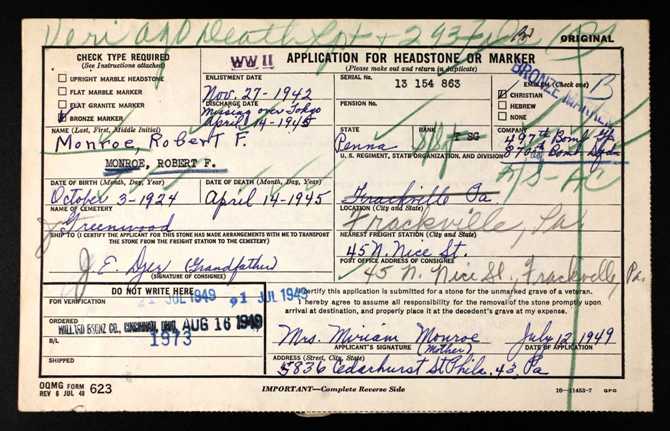 Veri AGO Death Rpt + 293 File
ORIGINAL
CHECK TYPE REQUIRED
(See Instructions attached)
UPRIGHT MARBLE HEADSTONE
FLAT MARBLE MARKER
FLAT GRANITE MARKER
BRONZE MARKER
WW II
APPLICATION FOR HEADSTONE OR MARKER
(Please make out and return in duplicate)
ENLISTMENT DATE
Nov. 27-1942
DISCHARGE DATE
Missing over Tokyo
April 14-1945
SERIAL No.
13 154 863
PENSION No.
EMBLEM (Check one)
B
CHRISTIAN
HEBREW
NONE
BRONZE MARKER
NAME (Last, First, Middle Initial)
Monroe, Robert F.
MONROE, ROBERT F.
STATE
Penna
RANK
S/Sgt
COMPANY
497th Bomb Gp
870th Bomb Sqdn
U. S. REGIMENT, STATE ORGANIZATION, AND DIVISION
DATE OF BIRTH (Month, Day, Year)
October 3-1924
DATE OF DEATH (Month, Day, Year)
April 14-1945
NAME OF CEMETERY
Greenwood
Frackville Pa.
LOCATION (City and State)
Frackville, Pa
SHIP TO (I CERTIFY THE APPLICANT FOR THIS STONE HAS MADE ARRANGEMENTS WITH ME TO TRANSPORT
THE STONE FROM THE FREIGHT STATION TO THE CEMETERY)
J. E. Dyer (Grandfather)
(SIGNATURE OF CONSIGNEE)
NEAREST FREIGHT STATION (City and State)
45 N. Nice St.
POST OFFICE ADDRESS OF CONSIGNEE
45 N. Nice St., Frackville, Pa.
DO NOT WRITE HERE
FOR VERIFICATION
21 JUL 1949
21 JUL 1949
ORDERED
AUG 16 1949
B/L
1973
SHIPPED
I certify this application is submitted for a stone for the unmarked grave of a veteran.
I hereby agree to assume all responsibility for the removal of the stone promptly upon
arrival at destination, and properly place it at the decedent's grave at my expense.
Mrs. Miriam Monroe
July 12, 1949
APPLICANT'S SIGNATURE (Mother)
DATE OF APPLICATION
ADDRESS (Street, City, State)
5836 Cedarhurst St Phila. 43, Pa
OQMG FORM
REV 6 JUL 48
623
IMPORTANT—Complete Reverse Side
16—11453-7 GPO